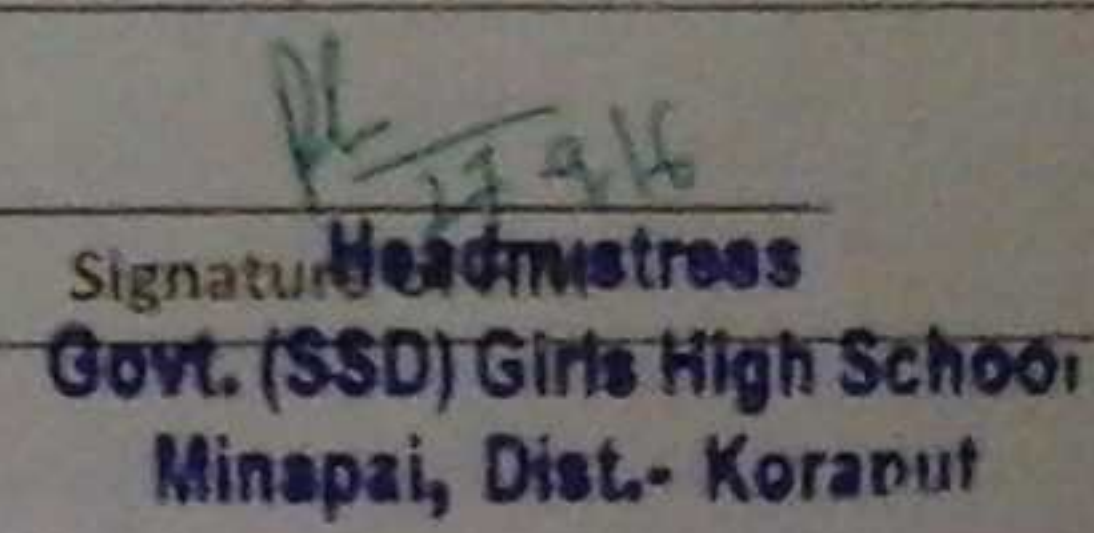 27 9 16
Signature
Headmistress
Govt. (SSD) Girls High School
Minapai, Dist.- Koraput